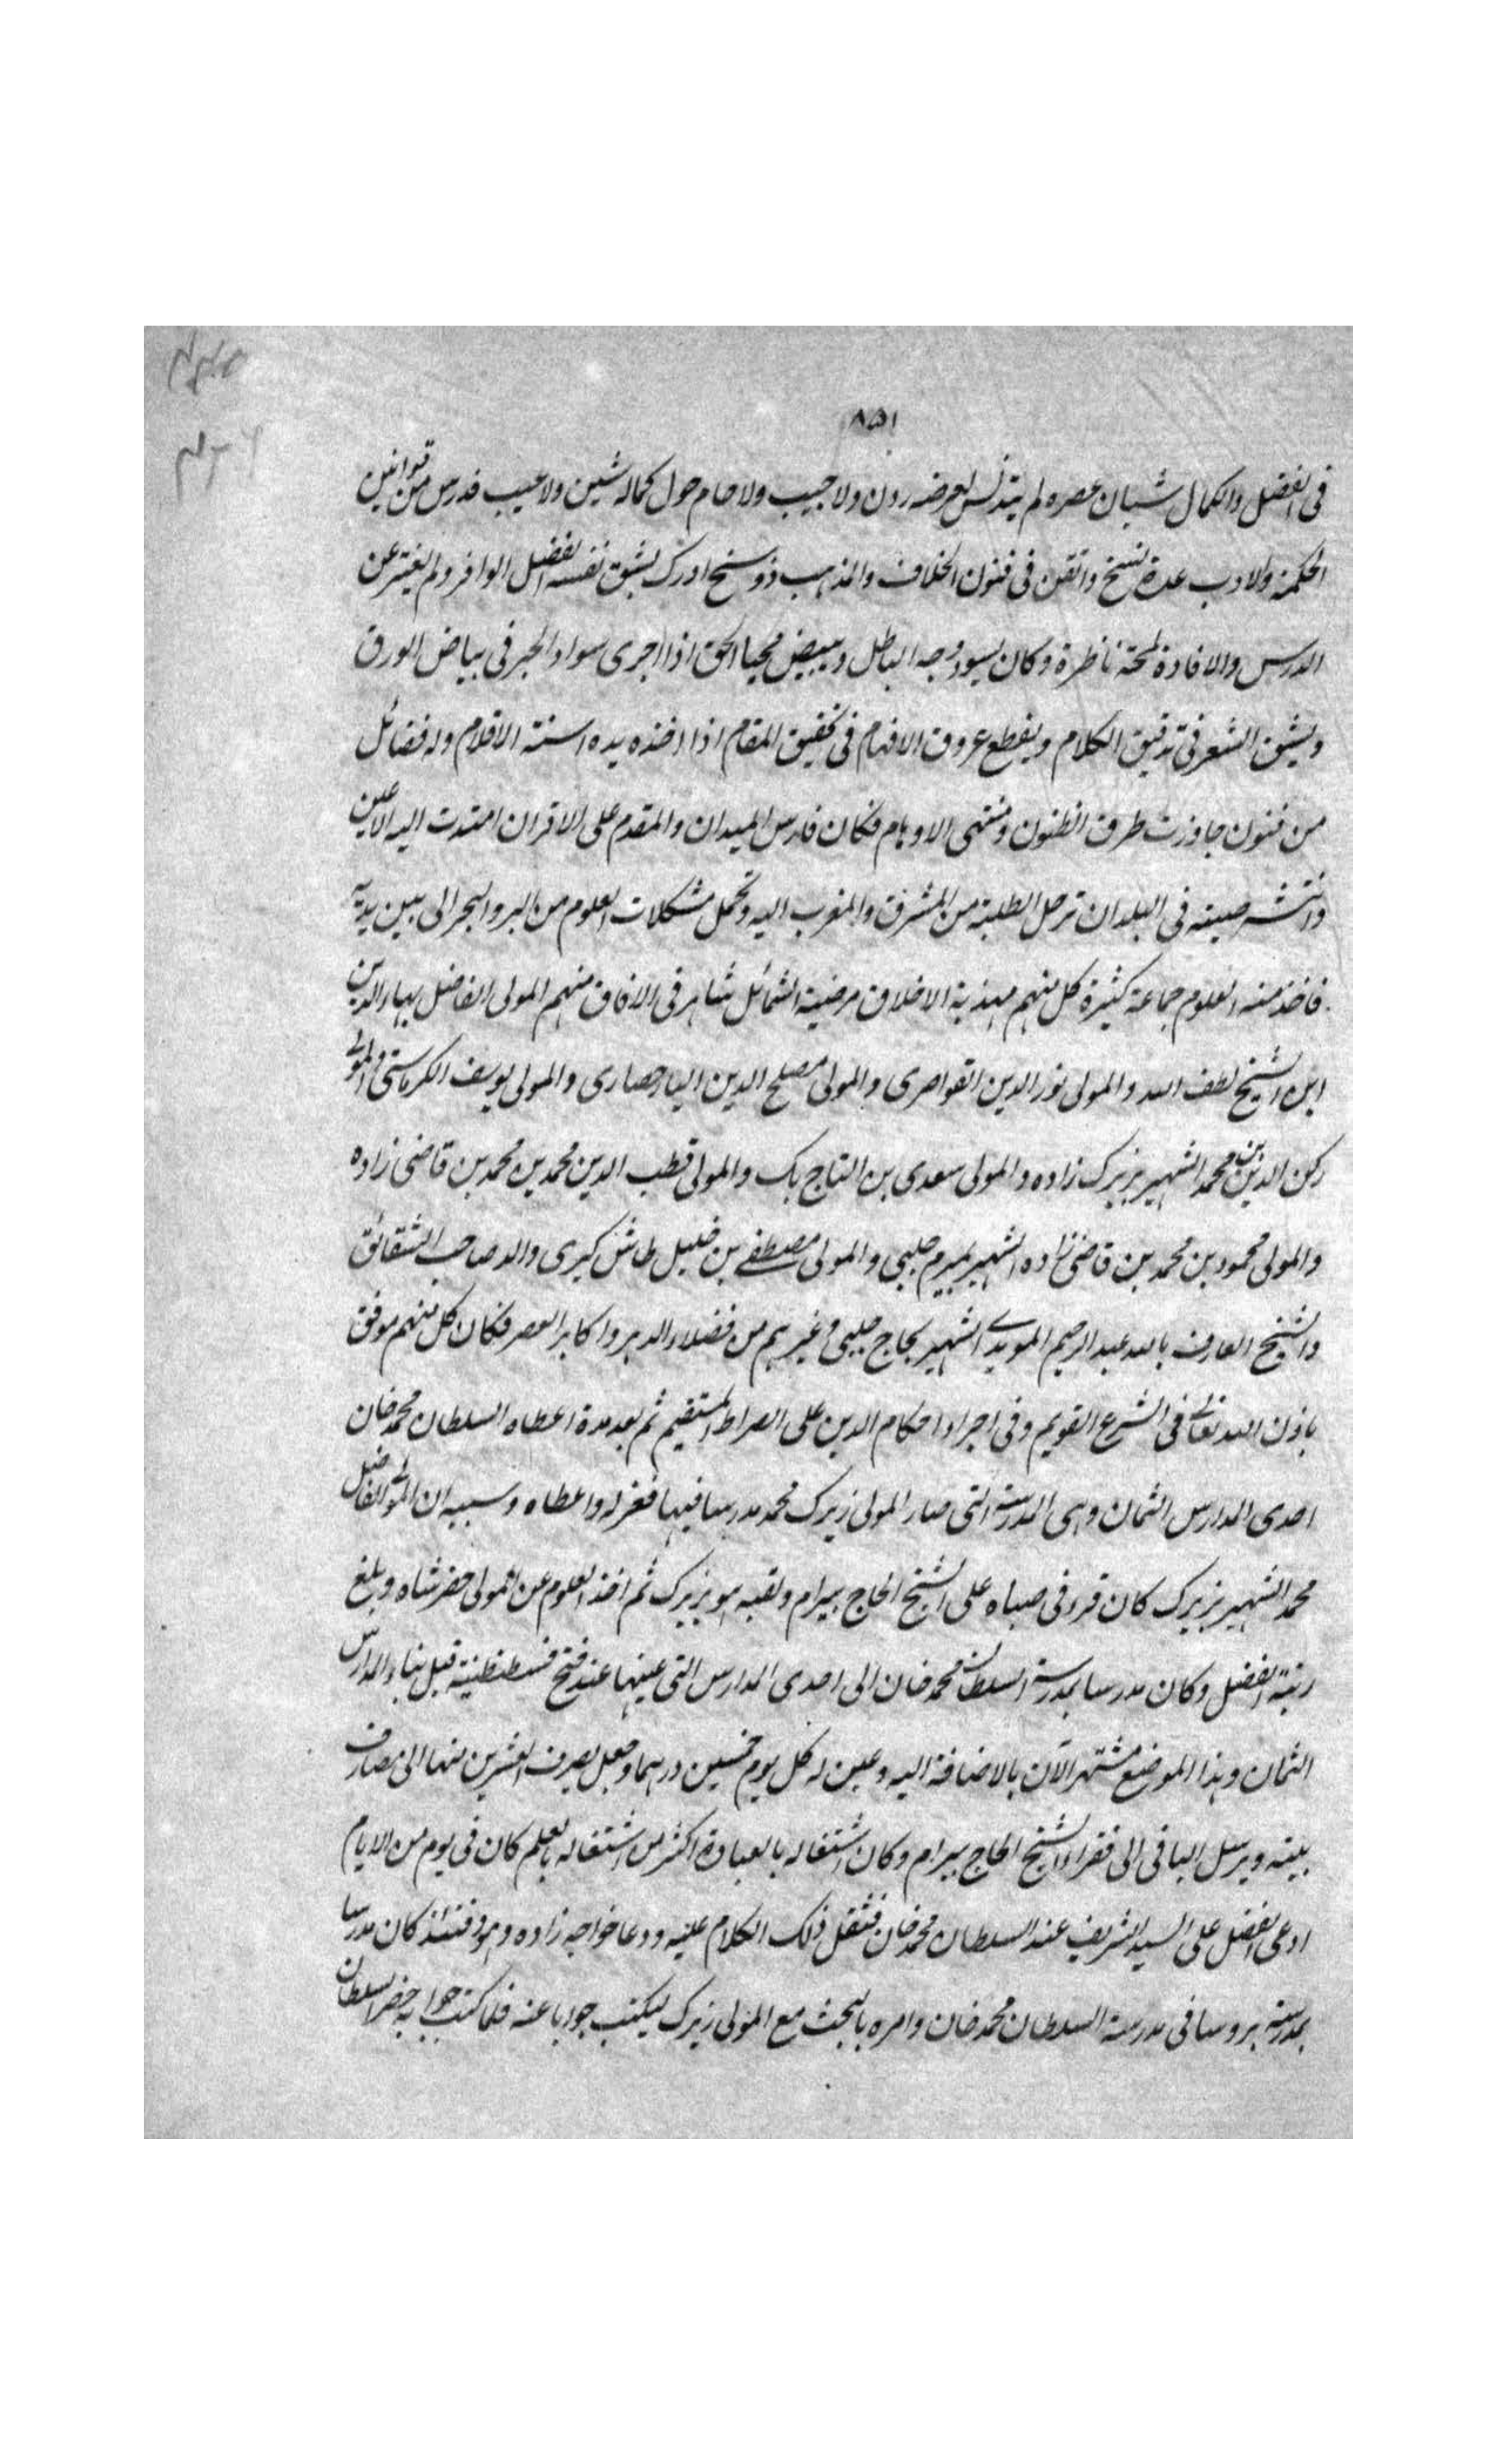 ٨٥١
فى الفضل والكمال شبان عصره لم يتدنس لعرضه ردن ولا جيب ولا حام حول كماله شين ولا عيب فدرس من قوانين
الحكمة والادب عدة نسخ واتقن فى فنون الخلاف والمذهب ذو سنخ ادرك بشق نفسه الفضل الوافر ولم يفتر عن
الدرس والافادة لمحة ناظرة وكان يسود وجه الباطل ويبيض محيا الحق اذا اجرى سواد الحبر فى بياض الورق
ويشق الشعر فى تدقيق الكلام ويقطع عروق الافهام فى تحقيق المقام اذا اخذه بيده اسنة الاقلام وله فضائل
من فنون جاوزت طرق الظنون ومنتهى الاوهام فكان فارس الميدان والمقدم على الاقران امتدت اليه الاعين
وانتشر صيته فى البلدان ترحل الطلبة من المشرق والمغرب اليه وتحمل مشكلات العلوم من البر والبحر الى بين يديه
فاخذ منه العلوم جماعة كثيرة كل منهم مهذبة الاخلاق مرضية الشمائل شاهر فى الافاق منهم المولى الفاضل بهاء الدين
ابن الشيخ لطف الله والمولى نور الدين القواصرى والمولى مصلح الدين اليارحصارى والمولى يوسف الكرماستى والمولى
ركن الدين بن محمد الشهير بزيرك زاده والمولى سعدى بن التاج بك والمولى قطب الدين محمد بن محمد بن قاضى زاده
والمولى محمود بن محمد بن قاضى زاده الشهير بميرم چلبى والمولى مصطفى بن خليل طاش كبرى والد صاحب الشقائق
والشيخ العارف بالله عبد الرحيم المويدى الشهير بحاج چلبى وغيرهم من فضلاء الدهر واكابر العصر فكان كل منهم موفق
باذن الله تعالى فى الشرع القويم وفى اجراء احكام الدين على الصراط المستقيم ثم بعد مدة اعطاه السلطان محمد خان
احدى المدارس الثمان وهى المدرسة التى صار المولى زيرك محمد مدرسا فيها فعزله واعطاه وسببه ان المولى الفاضل
محمد الشهير بزيرك كان قرء فى صباه على الشيخ الحاج بيرام ولقبه هو بزيرك ثم اخذ العلوم عن المولى خضر شاه وبلغ
رتبة الفضل وكان مدرسا بمدرسة السلطان محمد خان الى احدى المدارس التى عينها عند فتح قسطنطنية قبل بناء المدارس
الثمان وهذا الموضع مشتهر الآن بالاضافة اليه وعين له كل يوم خمسين درهما وجعل يصرف العشرين منها الى مصارف
بيته ويرسل الباقى الى فقراء الشيخ الحاج بيرام وكان اشتغاله بالعبادة اكثر من اشتغاله بالعلم كان فى يوم من الايام
ادعى الفضل على السيد الشريف عند السلطان محمد خان فثقل ذلك الكلام عليه ودعا خواجه زاده وهو وقتئذ كان مدرسا
بمدرسة بروسا فى مدرسة السلطان محمد خان وامره بالبحث مع المولى زيرك ليكتب جوابا عنه فلما كتب جوابه حضر السلطان